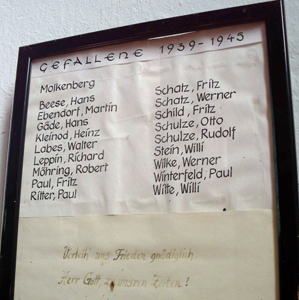 GEFALLENE 1939-1945
Molkenberg
Beese, Hans
Ebendorf, Martin
Gäde, Hans
Kleinod, Heinz
Labes, Walter
Leppin, Richard
Möhring, Robert
Paul, Fritz
Ritter, Paul
Schatz, Fritz
Schatz, Werner
Schild, Fritz
Schulze, Otto
Schulze, Rudolf
Stein, Willi
Wilke, Werner
Winterfeld, Paul
Witte, Willi
Verleih uns Frieden gnädiglich
Herr Gott, zu unsren Zeiten!